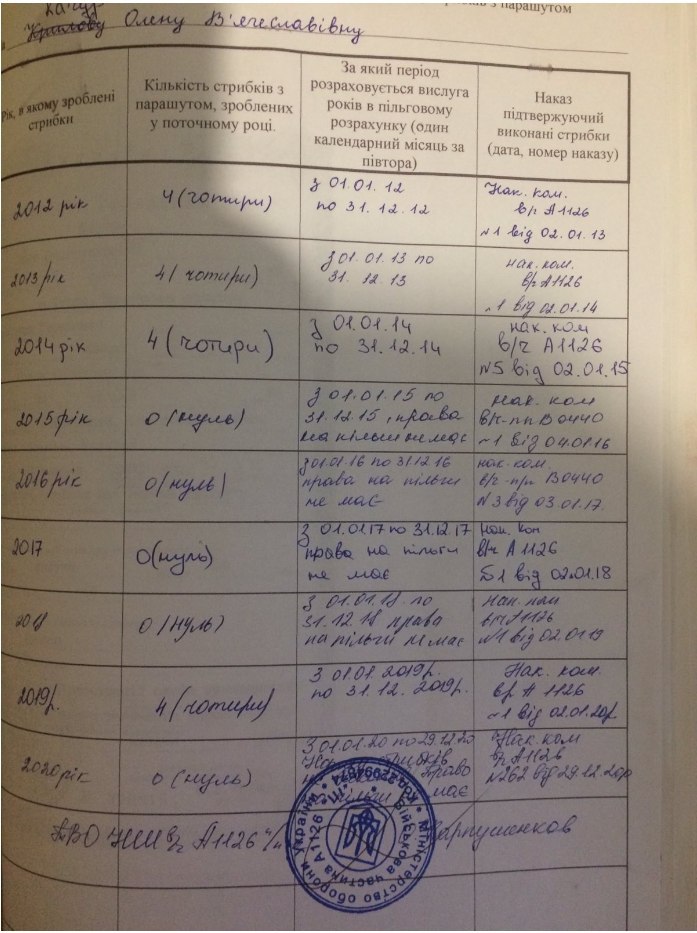 Качур
Крилову Олену В'ячеславівну
з парашутом
Рік, в якому зроблені
стрибки
Кількість стрибків з
парашутом, зроблених
у поточному році.
За який період
розраховується вислуга
років в пільговому
розрахунку (один
календарний місяць за
півтора)
Наказ
підтвержуючий
виконані стрибки
(дата, номер наказу)
2012 рік
4 (чотири)
з 01.01.12
по 31.12.12
Нак. ком.
в/ч А1126
№1 від 02.01.13
2013 рік
4 (чотири)
з 01.01.13 по
31.12.13
нак. ком.
в/ч А1126
№1 від 02.01.14
2014 рік
4 (чотири)
з 01.01.14
по 31.12.14
нак. ком
в/ч А1126
№5 від 02.01.15
2015 рік
0 (нуль)
з 01.01.15 по
31.12.15, права
на пільги немає
нак. ком
в/ч-пп В0440
№1 від 04.01.16
2016 рік
0 (нуль)
з 01.01.16 по 31.12.16
права на пільги
не має
нак. ком.
в/ч-пп В0440
№3 від 03.01.17.
2017
0 (нуль)
з 01.01.17 по 31.12.17
права на пільги
не має
Нак. ком
в/ч А1126
№1 від 02.01.18
2018
0 (нуль)
з 01.01.18 по
31.12.18 права
на пільги не має
нак. ком
в/ч А1126
№1 від 02.01.19
2019р.
4 (чотири)
З 01.01.2019р.
по 31.12.2019р.
Нак. ком.
в/ч А1126
№1 від 02.01.20р.
2020 рік
0 (нуль)
З 01.01.20 по 29.12.20
право
пільги має
Нак. ком
в/ч А1126
№262 від 29.12.20р
ТВО НШ в/ч А1126
Міністерство оборони України
Військова частина А1126